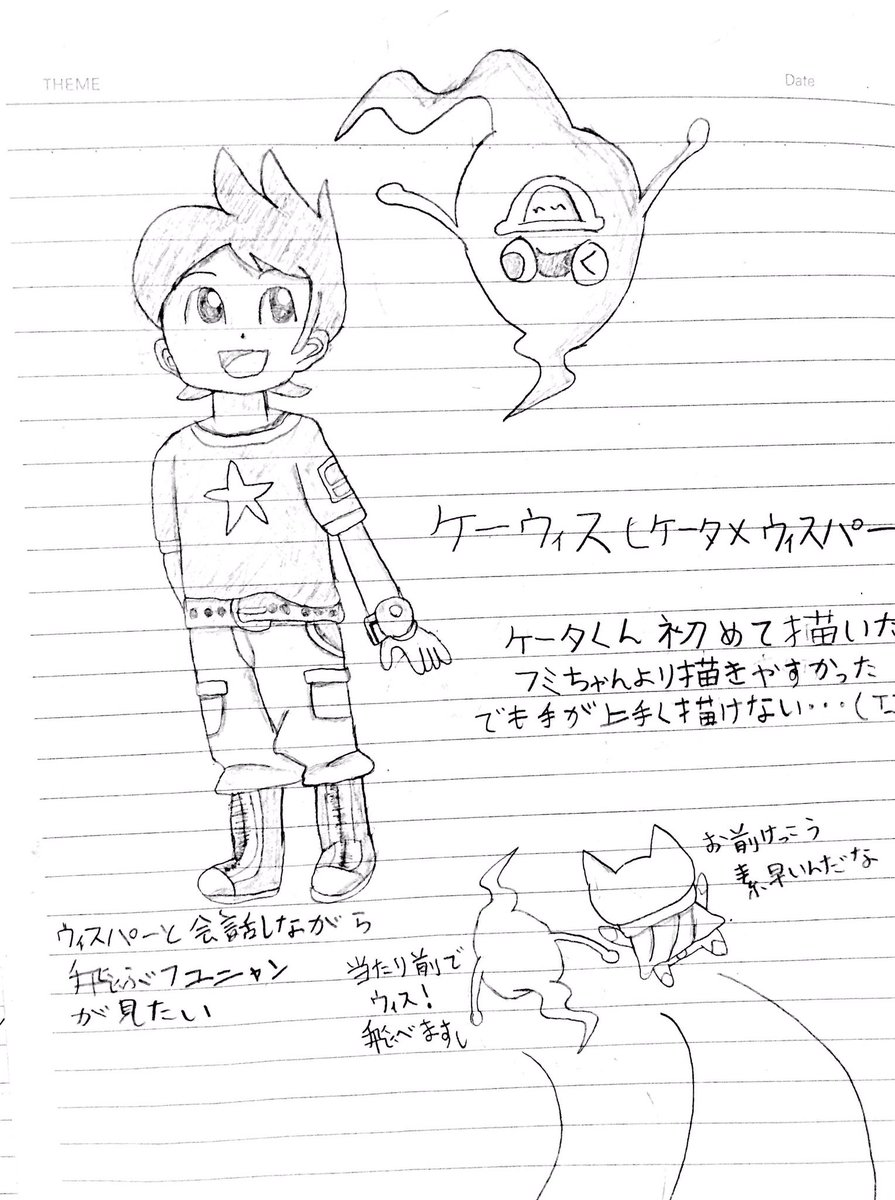 THEME
Date
ケーウィス(ケータ×ウィスパー
ケータくん 初めて描いた
フミちゃんより描きやすかった
でも手が上手く描けない・・・(
お前けっこう
素早いんだな
ウィスパーと会話しながら
飛ぶフユニャン
が見たい
当たり前で
ウィス!
飛べますし